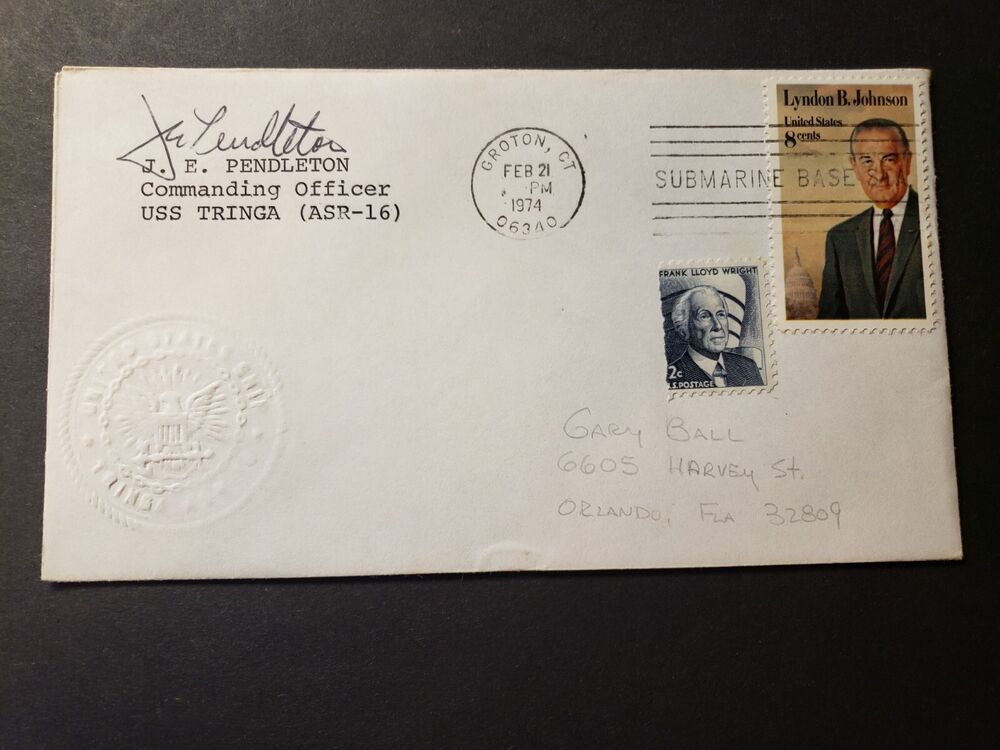 J E Pendleton
J. E. PENDLETON
Commanding Officer
USS TRINGA (ASR-16)
GROTON, CT
FEB 21
PM
1974
06340
SUBMARINE BASE STA
Lyndon B. Johnson
United States
8 cents
FRANK LLOYD WRIGHT
2c
U.S. POSTAGE
UNITED STATES SHIP
TRINGA
GARY BALL
6605 HARVEY St.
ORLANDO, FLA 32809